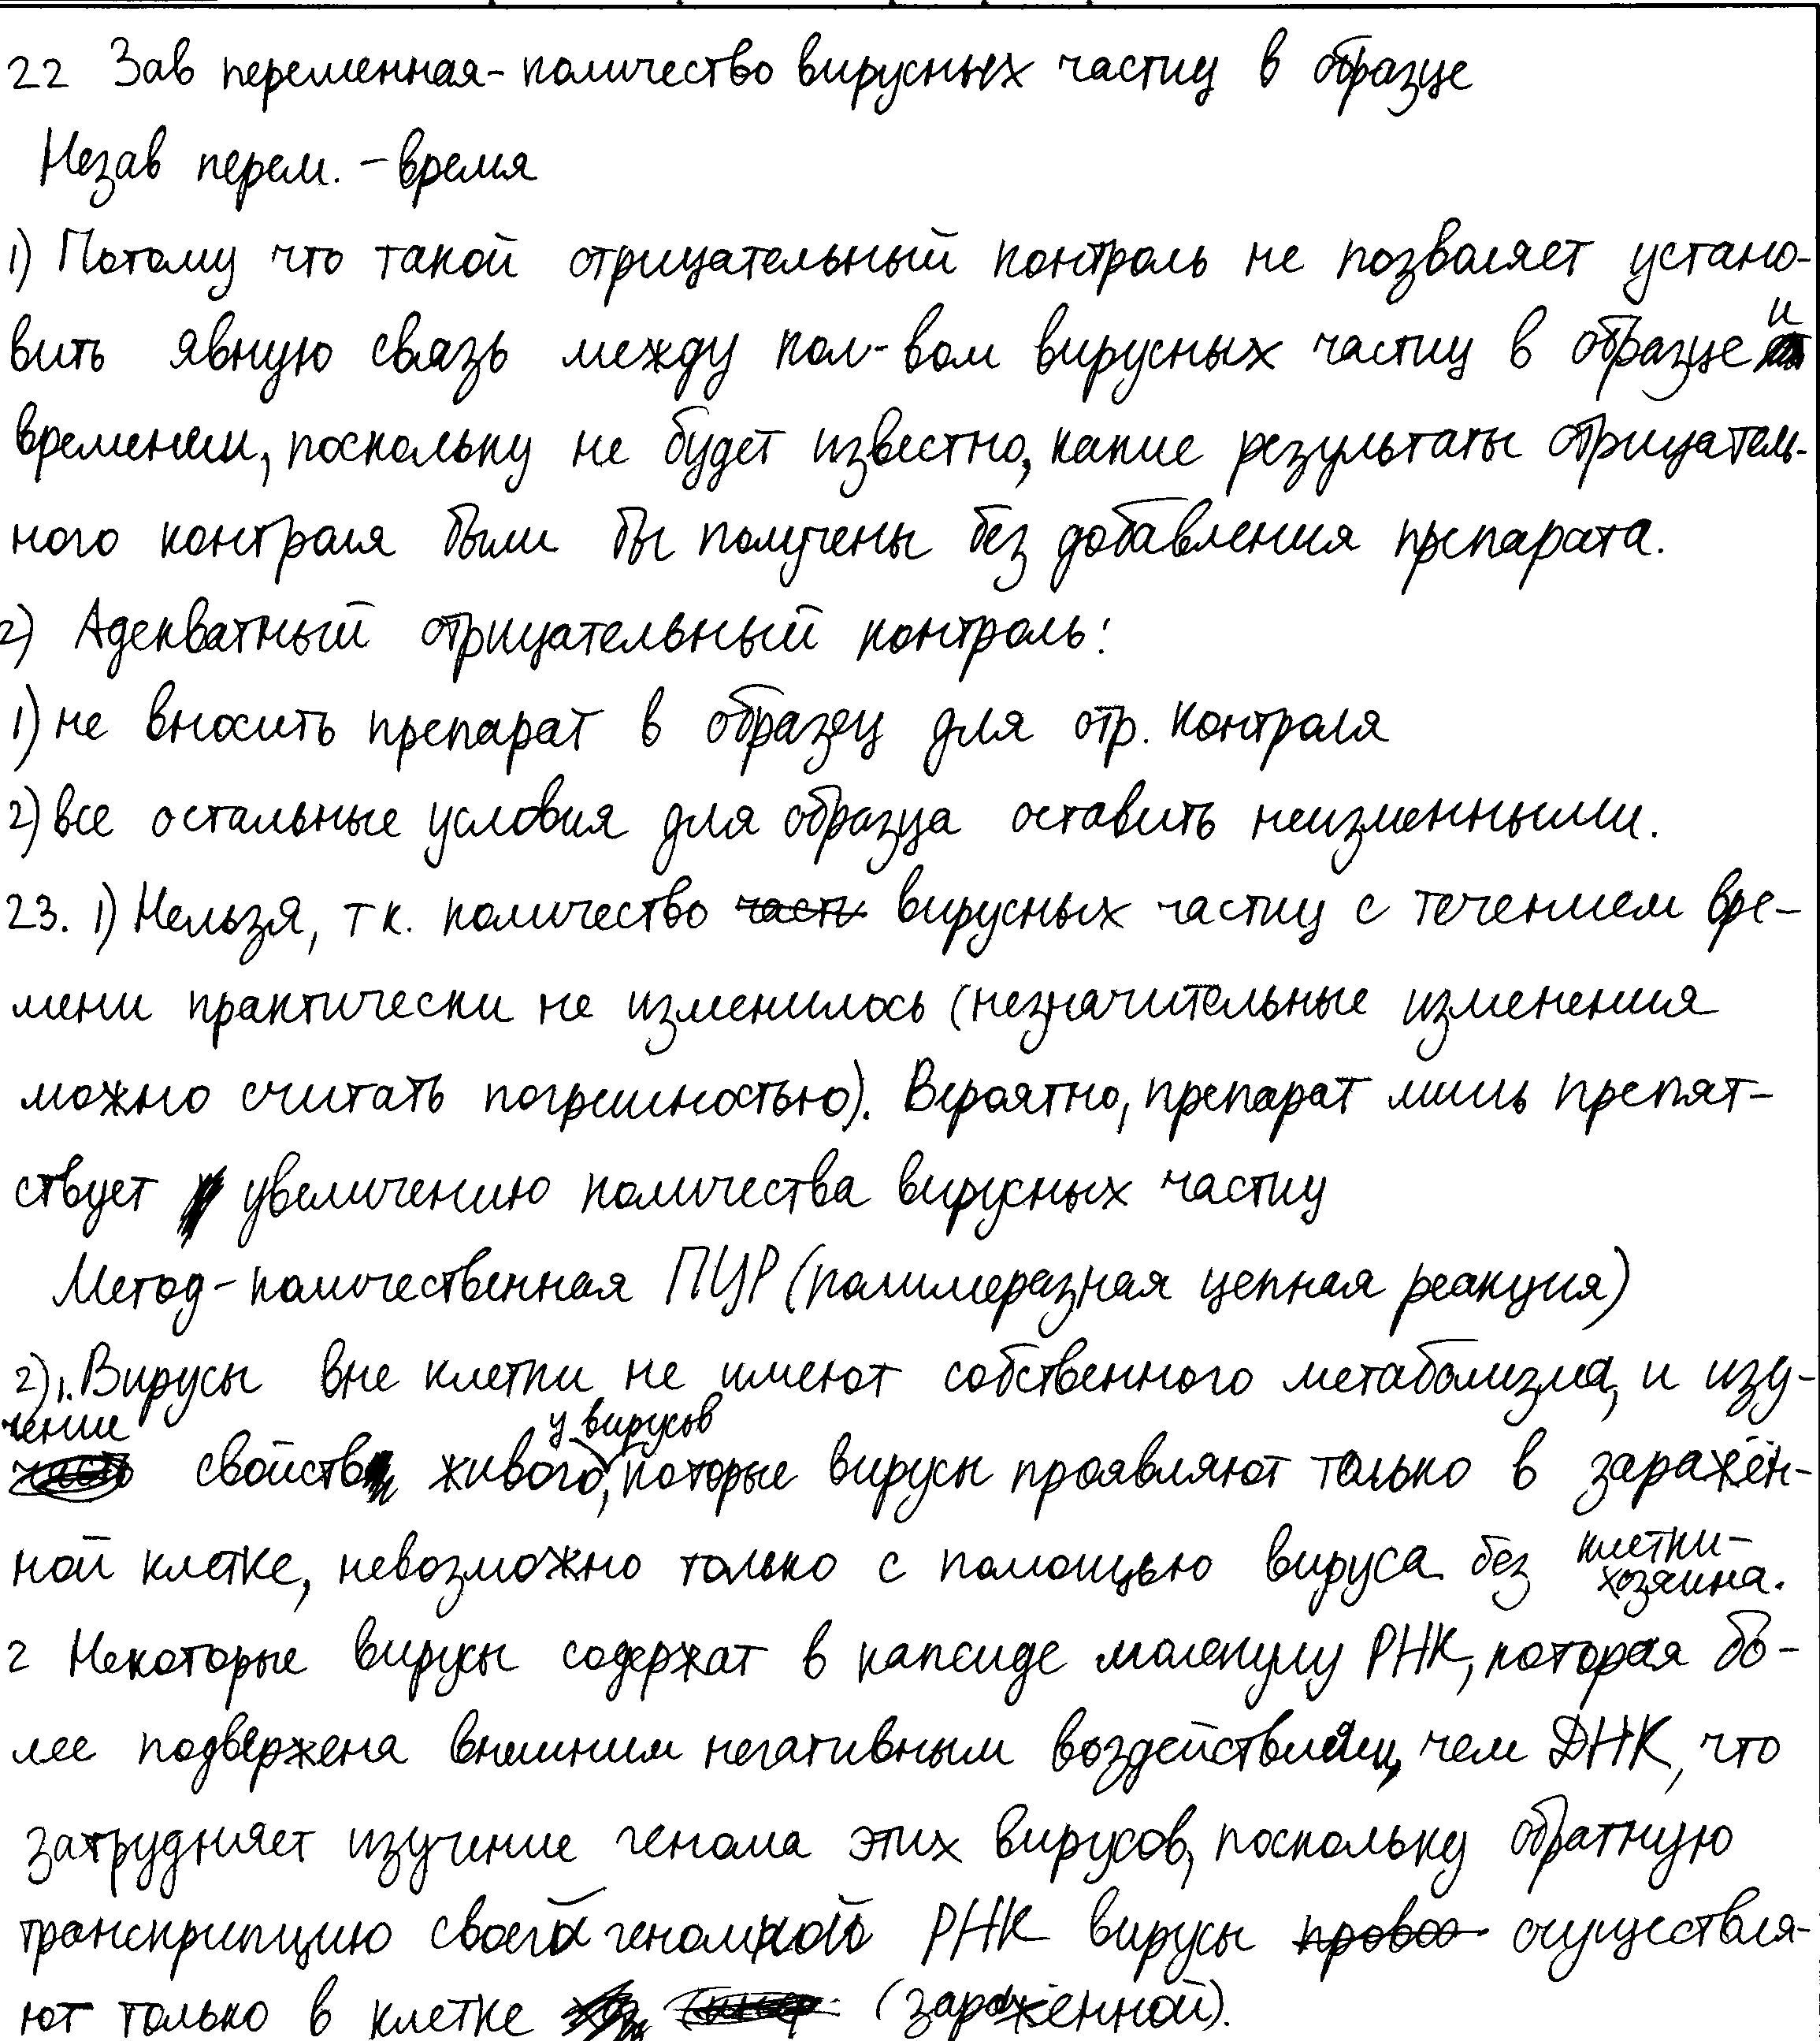 22 Зав переменная - количество вирусных частиц в образце
Незав перем. - время
1) Потому что такой отрицательный контроль не позволяет устано-
вить явную связь между кол-вом вирусных частиц в образце и
временем, поскольку не будет известно, какие результаты отрицатель-
ного контроля были бы получены без добавления препарата.
2) Адекватный отрицательный контроль:
1) не вносить препарат в образец для отр. контроля
2) все остальные условия для образца оставить неизменными.
23. 1) Нельзя, т к. количество вирусных частиц с течением вре-
мени практически не изменилось (незначительные изменения
можно считать погрешностью). Вероятно, препарат лишь препят-
ствует увеличению количества вирусных частиц
Метод - количественная ПЦР (полимеразная цепная реакция)
2) 1. Вирусы вне клетки не имеют собственного метаболизма, и изу-
чение свойств живого у вирусов, которые вирусы проявляют только в заражён-
ной клетке, невозможно только с помощью вируса без клетки-
хозяина.
2 Некоторые вирусы содержат в капсиде молекулу РНК, которая бо-
лее подвержена внешним негативным воздействиям, чем ДНК, что
затрудняет изучение генома этих вирусов, поскольку обратную
транскрипцию своей геномной РНК вирусы осуществля-
ют только в клетке (заражённой).